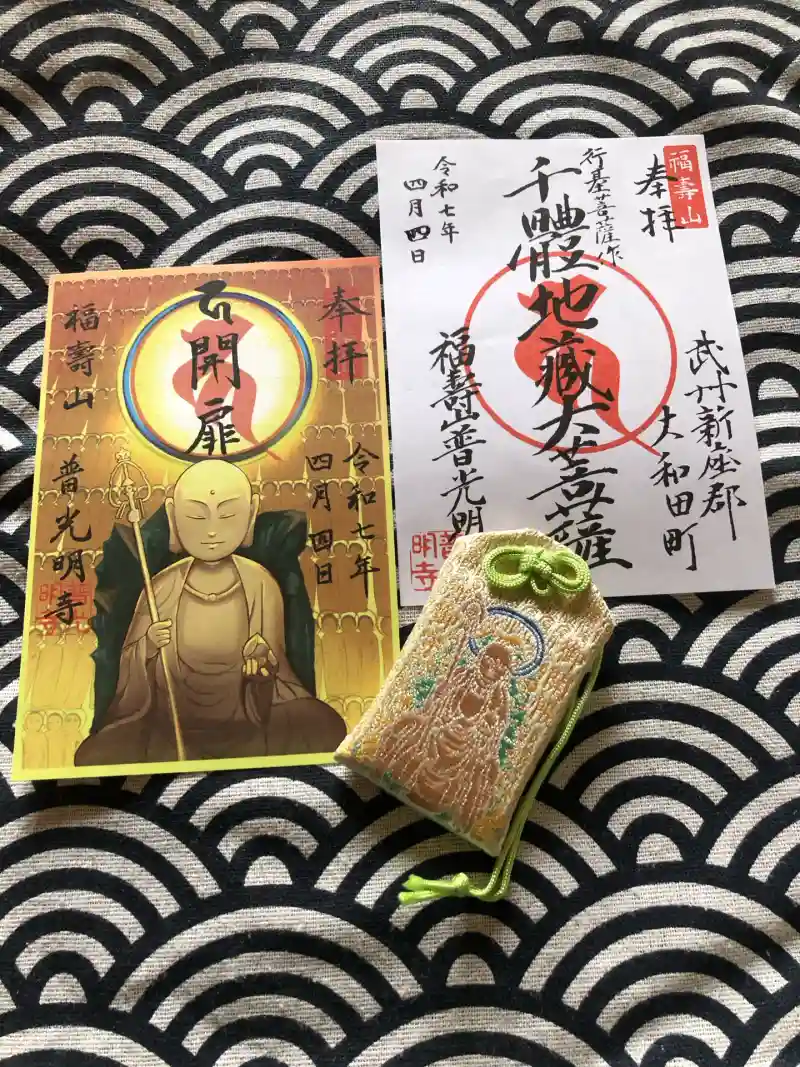 福壽山
奉拝
武州新座郡
大和田町
行基菩薩作
千體地藏大菩薩
福壽山普光明
令和七年
四月四日
明寺
奉拝
令和七年
四月四日
開扉
福壽山
普光明寺